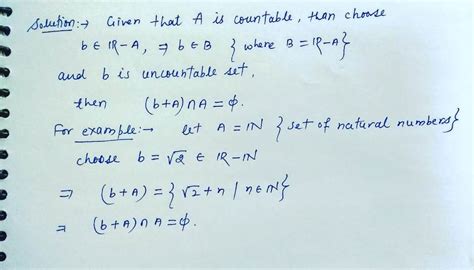 Solution:→ Given that A is countable, than choose
b ∈ IR-A, ⇒ b ∈ B { where B = IR-A}
and b is uncountable set,
then (b+A)∩A = ϕ.
For example:→ let A = IN { set of natural numbers}
choose b = √2 ∈ IR-IN
⇒ (b+A) = { √2 + n | n ∈ IN}
⇒ (b+A)∩A = ϕ.